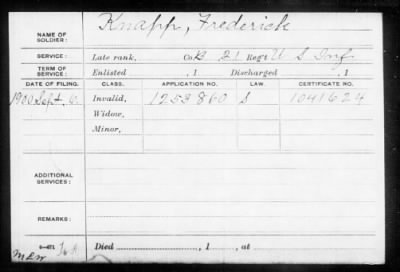 Knapp, Frederick
NAME OF SOLDIER:
SERVICE: Late rank, Co. B 21 Reg't U S Inf
TERM OF SERVICE: Enlisted , 1 Discharged , 1
DATE OF FILING. CLASS. APPLICATION NO. LAW. CERTIFICATE NO.
1900 Sept, 6. Invalid, 1253860 S 1041624
Widow,
Minor,
ADDITIONAL SERVICES:
REMARKS:
Died , 1 , at